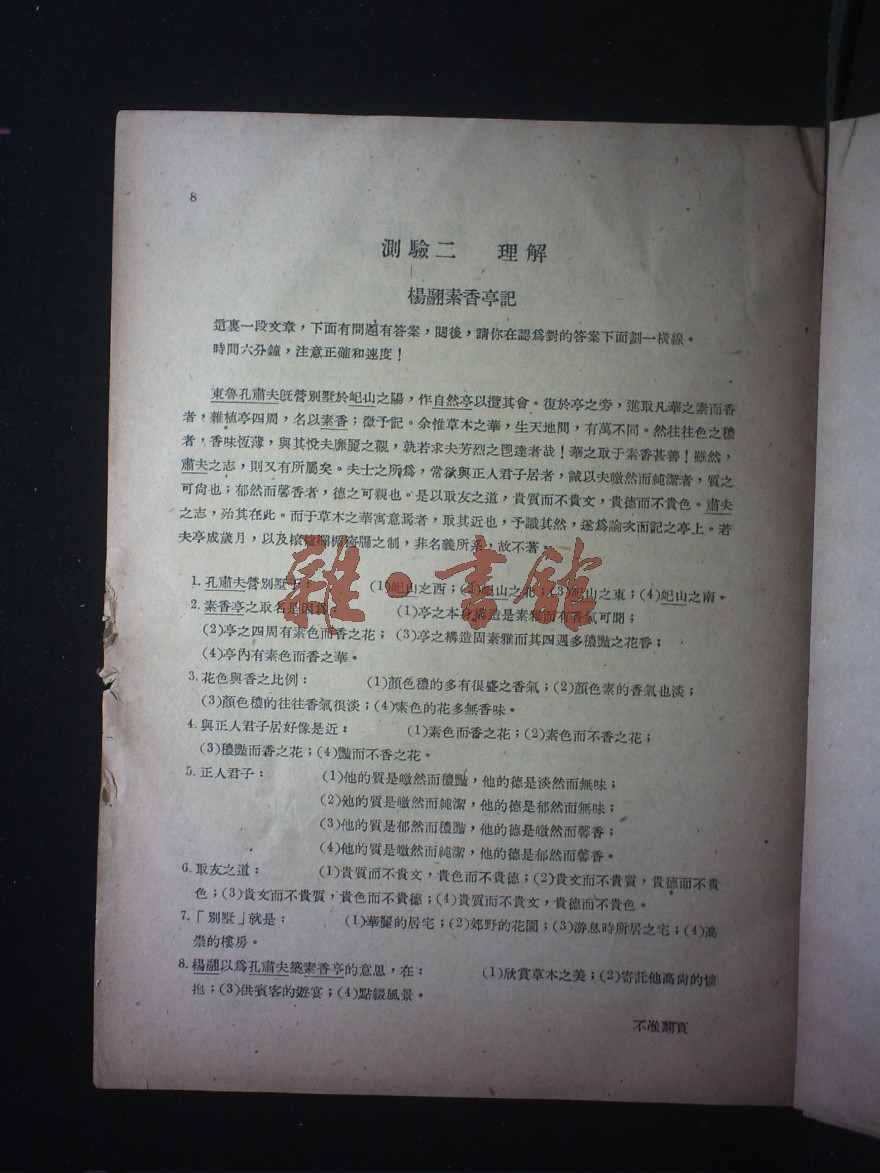 8
測驗二 理解
楊翮素香亭記
這裏一段文章,下面有問題有答案,閱後,請你在認爲對的答案下面劃一橫線。
時間六分鐘,注意正確和速度!
東魯孔肅夫旣營別墅於屺山之陽,作自然亭以攬其會。復於亭之旁,進取凡華之素而香
者,雜植亭四周,名以素香;徵予記。余惟草木之華,生天地間,有萬不同。然往往色之穠
者,香味恆薄,與其悅夫靡麗之觀,孰若求夫芳烈之鬯達者哉!華之取于素香甚善!雖然,
肅夫之志,則又有所屬矣。夫士之所爲,常欲與正人君子居者,誠以夫皦然而純潔者,質之
可尙也;郁然而馨香者,德之可親也。是以取友之道,貴質而不貴文,貴德而不貴色。肅夫
之志,殆其在此。而于草木之華寓意焉者,取其近也,予識其然,遂爲論次而記之亭上。若
夫亭成歲月,以及之制,非名義所系,故不著。
1.孔肅夫營別墅于: (1)屺山之西;(2)屺山之北;(3)屺山之東;(4)屺山之南。
2.素香亭之取名是因爲: (1)亭之本身構造是素雅而有香氣可聞;
(2)亭之四周有素色而香之花; (3)亭之構造固素雅而其四週多穠豔之花香;
(4)亭內有素色而香之華。
3.花色與香之比例: (1)顏色穠的多有很盛之香氣;(2)顏色素的香氣也淡;
(3)顏色穠的往往香氣很淡;(4)素色的花多無香味。
4.與正人君子居好像是近: (1)素色而香之花;(2)素色而不香之花;
(3)穠豔而香之花;(4)豔而不香之花。
5.正人君子: (1)他的質是皦然而穠豔,他的德是淡然而無味;
(2)他的質是皦然而純潔,他的德是郁然而無味;
(3)他的質是郁然而穠豔,他的德是皦然而馨香;
(4)他的質是皦然而純潔,他的德是郁然而馨香。
6.取友之道: (1)貴質而不貴文,貴色而不貴德;(2)貴文而不貴質,貴德而不貴
色;(3)貴文而不貴質,貴色而不貴德;(4)貴質而不貴文,貴德而不貴色。
7.「別墅」就是: (1)華麗的居宅;(2)郊野的花園;(3)游息時所居之宅;(4)高
崇的樓房。
8.楊翮以爲孔肅夫築素香亭的意思,在: (1)欣賞草木之美;(2)寄託他高尙的懷
抱;(3)供賓客的遊宴;(4)點綴風景。
不准翻頁
雜·書館